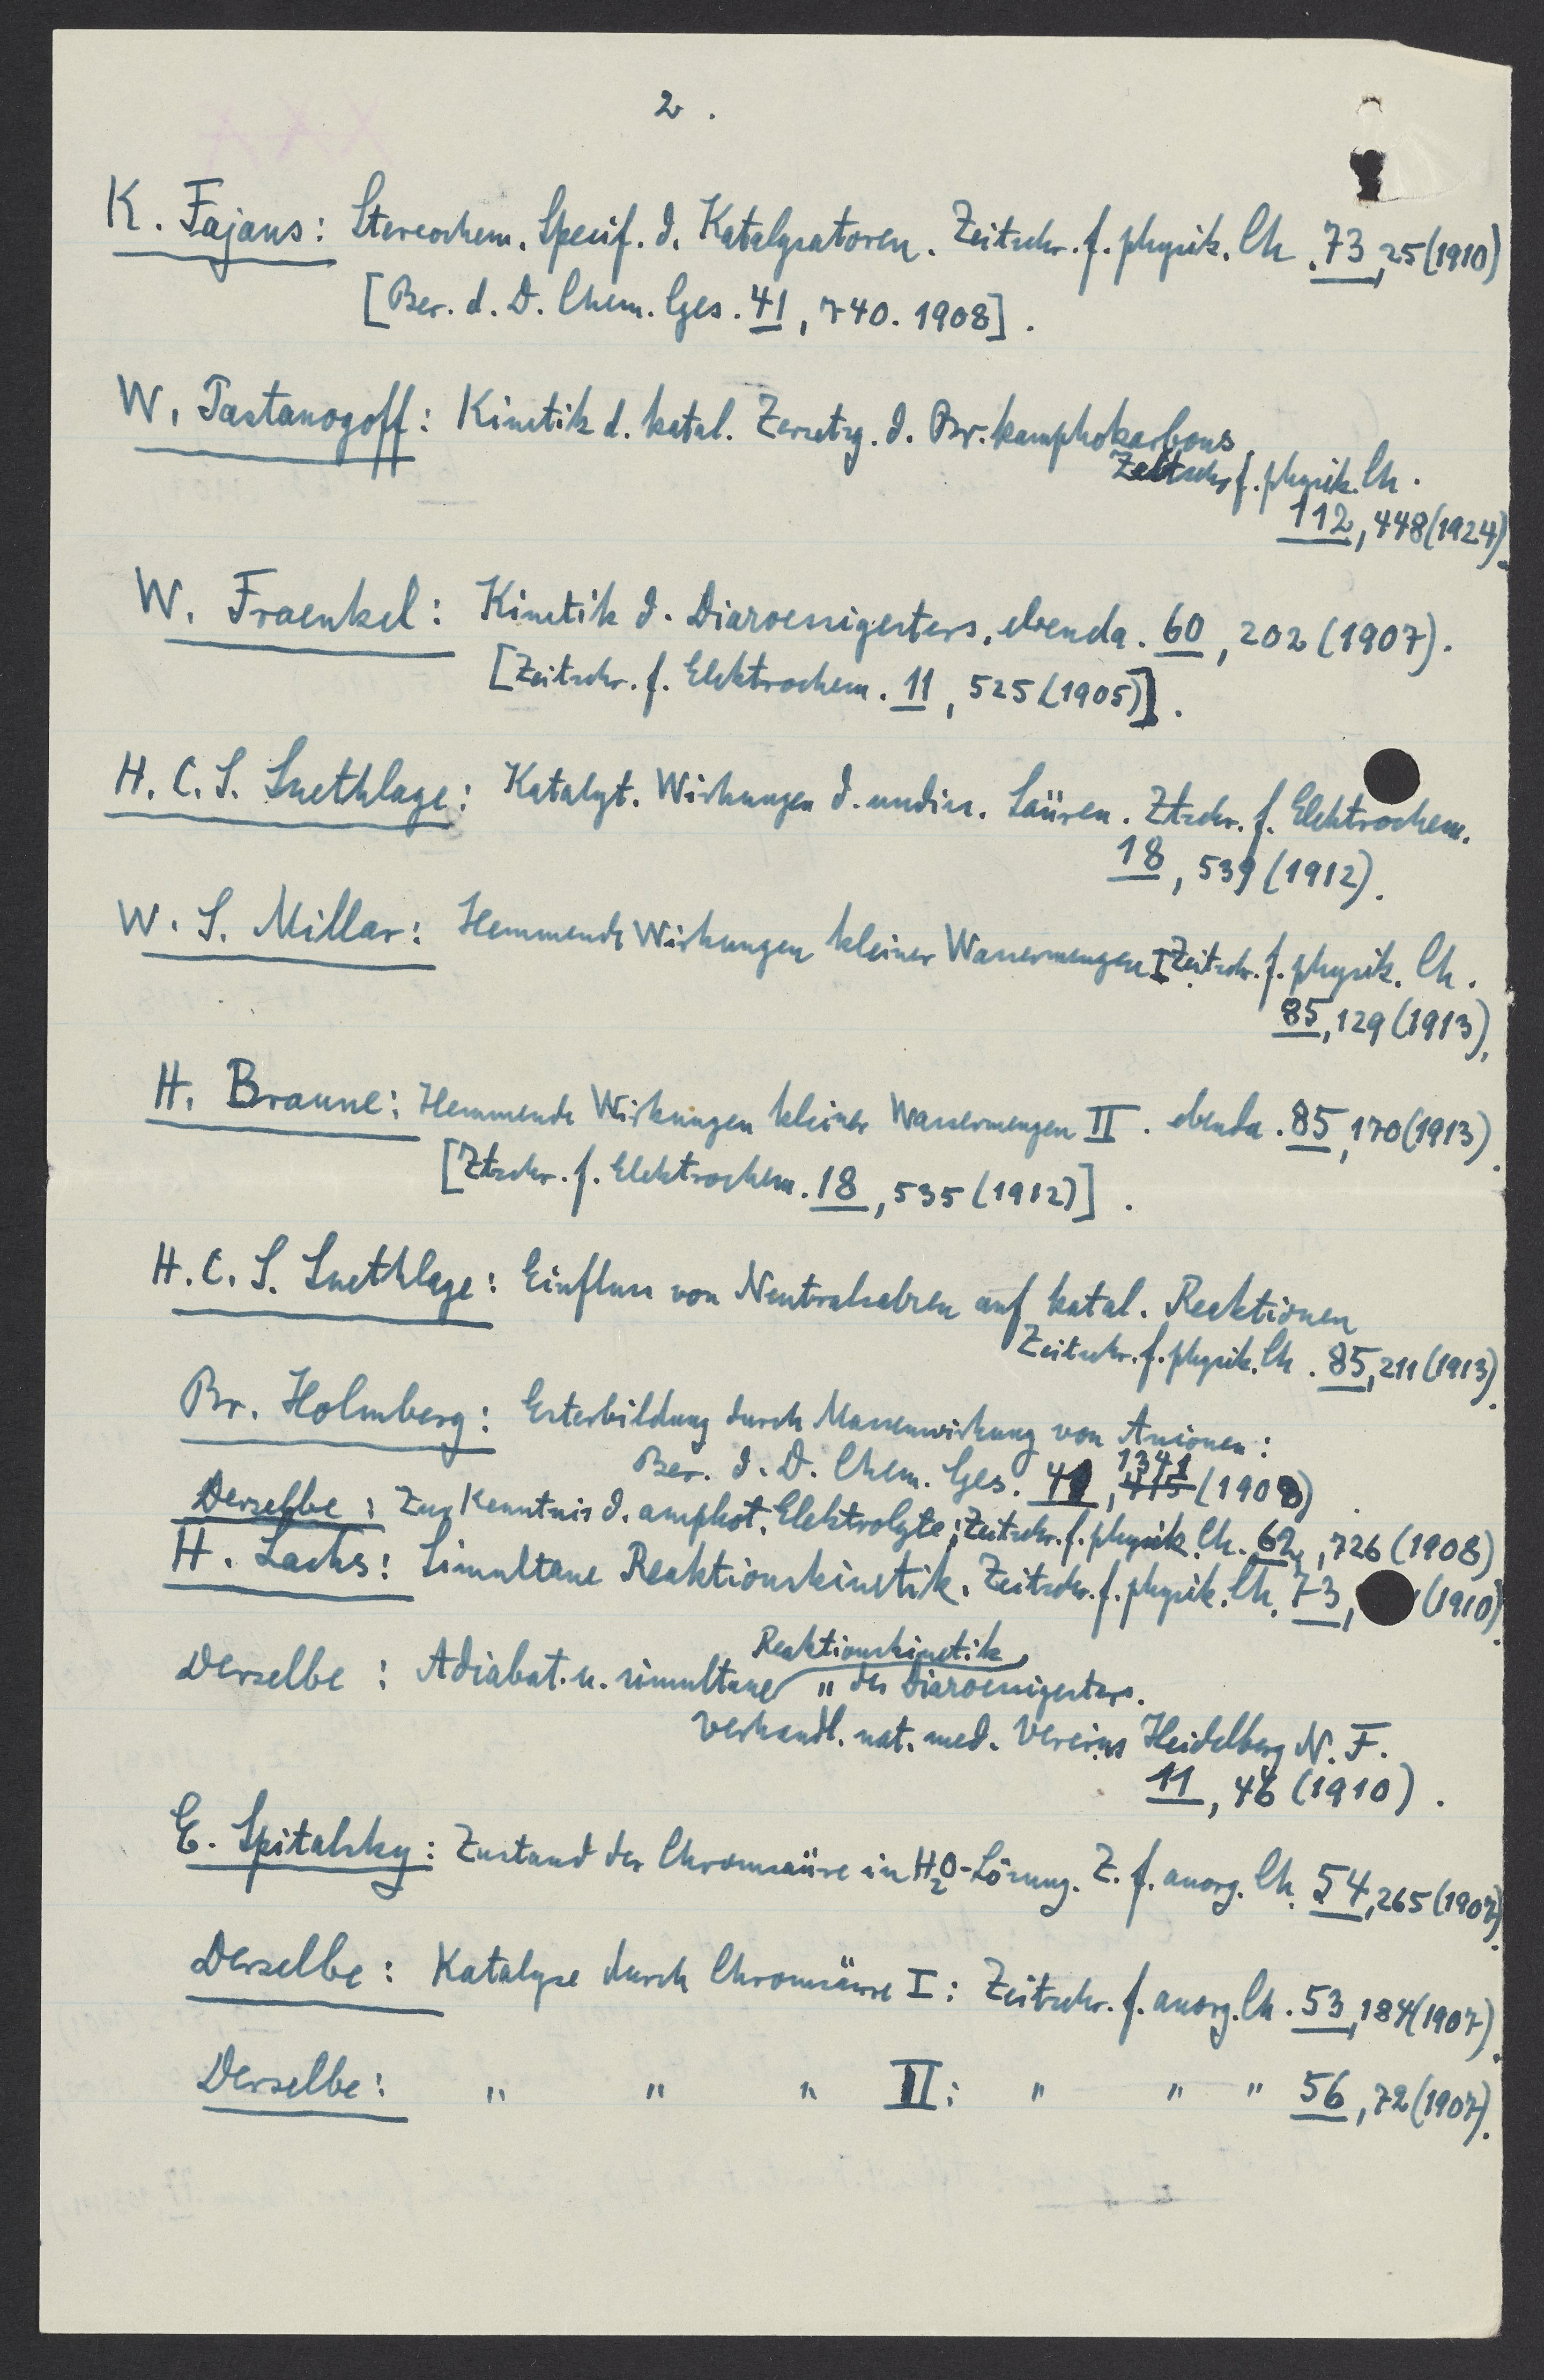 2.
K. Fajans: Stereochem. Specif. d. Katalysatoren. Zeitschr. f. physik. Ch. 73, 25 (1910)
[Ber. d. D. Chem. Ges. 41, 740. 1908].
W. Pastanogoff: Kinetik d. katal. Zersetzg. d. Br. kamphokarbons.
Zeitschr. f. physik. Ch.
112, 448 (1924).
W. Fraenkel: Kinetik d. Diazoessigesters, ebenda. 60, 202 (1907).
[Zeitschr. f. Elektrochem. 11, 525 (1905)].
H. C. S. Snethlage: Katalyt. Wirkungen d. undiss. Säuren. Ztschr. f. Elektrochem.
18, 539 (1912).
W. S. Millar: Hemmende Wirkungen kleiner Wassermengen I Zeitschr. f. physik. Ch.
85, 129 (1913).
H. Braune: Hemmende Wirkungen kleiner Wassermengen II. ebenda. 85, 170 (1913).
[Ztschr. f. Elektrochem. 18, 535 (1912)].
H. C. S. Snethlage: Einfluss von Neutralsalzen auf katal. Reaktionen
Zeitschr. f. physik. Ch. 85, 211 (1913).
Br. Holmberg: Esterbildung durch Massenwirkung von Anionen:
Ber. d. D. Chem. Ges. 41, 1341 (1908).
Derselbe: Zur Kenntnis d. amphot. Elektrolyte; Zeitschr. f. physik. Ch. 62, 726 (1908)
H. Lachs: Simultane Reaktionskinetik. Zeitschr. f. physik. Ch. 73, (1910).
Derselbe: Adiabat. u. simultane Reaktionskinetik " des Diazoessigesters.
Verhandl. nat. med. Vereins Heidelberg N. F.
11, 46 (1910).
E. Spitalsky: Zustand der Chromsäure in H2O-Lösung. Z. f. anorg. Ch. 54, 265 (1907).
Derselbe: Katalyse durch Chromsäure I: Zeitschr. f. anorg. Ch. 53, 184 (1907).
Derselbe: " " " II: " " " 56, 72 (1907).